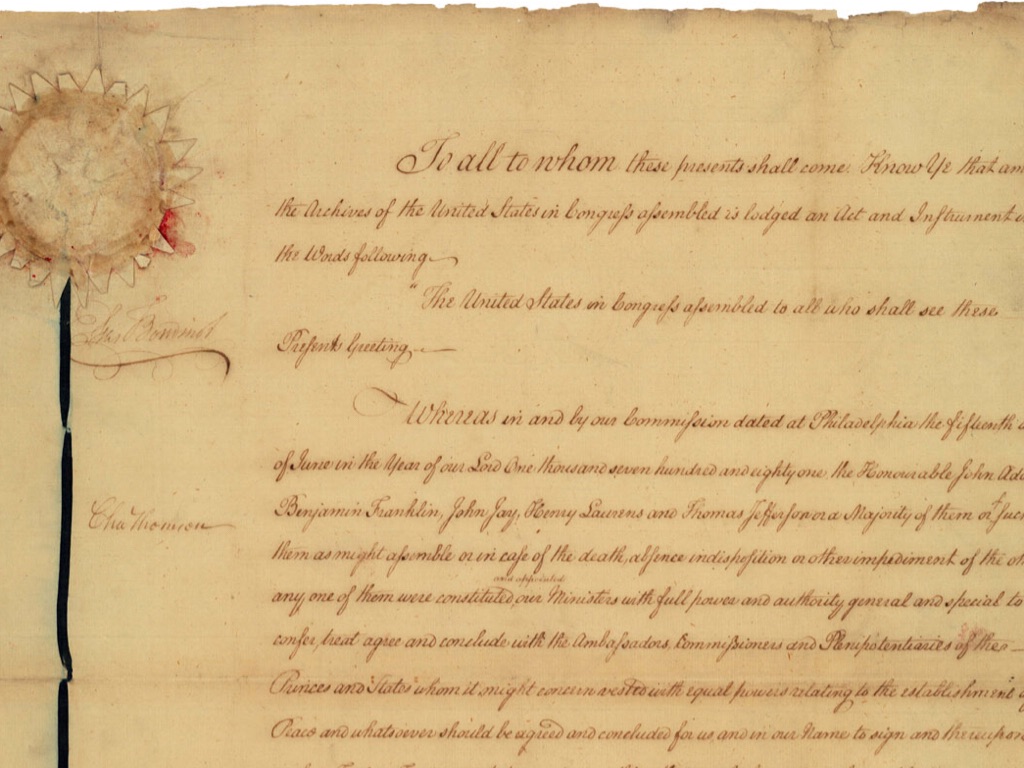 To all to whom these presents shall come. Know Ye that am
the Archives of the United States in Congreſs aſsembled is lodged an Act and Inſtrument
the Words following
"The United States in Congreſs aſsembled to all who shall see these
Preſents Greeting
Elias Boudinot
Whereas in and by our Commiſsion dated at Philadelphia the fifteenth
of June in the Year of our Lord One thousand seven hundred and eighty one, the Honourable John Ada
Benjamin Franklin, John Jay, Henry Laurens and Thomas Jefferson or a Majority of them or of suc
Cha Thomson
them as might aſsemble or in caſe of the death, abſence indispoſition or other impediment of the ot
and appointed
any one of them were constituted our Ministers with full power and authority general and special to
confer, treat agree and conclude with the Ambaſsadors, Commiſsioners and Plenipotentiaries of the
Princes and States whom it might concern vested with equal powers relating to the establishment
Peace and whatsoever should be agreed and concluded for us and in our Name to sign and thereupon